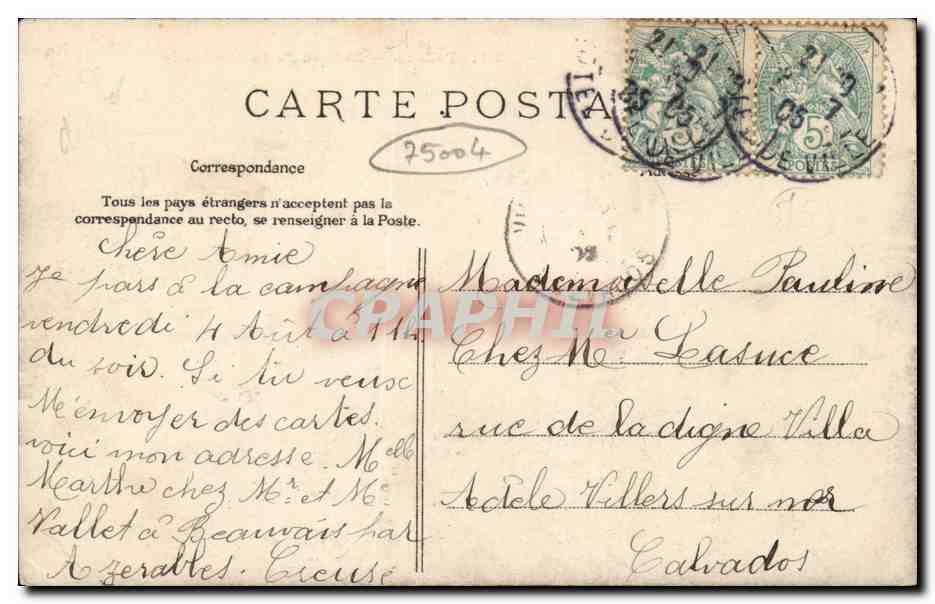 CARTE POSTA
75004
Correspondance
Tous les pays étrangers n'acceptent pas la
correspondance au recto, se renseigner à la Poste.
21 9
7
05
5c
POSTES
chère Amie
Je pars à la campagne
vendredi 4 Août à 9h
du soir. Si tu veuse
M'envoyer des cartes.
voici mon adresse. Melle
Marthe chez Mr et Me
Vallet à Beauvais par
Azerables. Creuse
Mademoiselle Pauline
Chez Mr Lasuce
rue de la digne Villa
Adèle Villers sur mer
Calvados
CPAPHIL